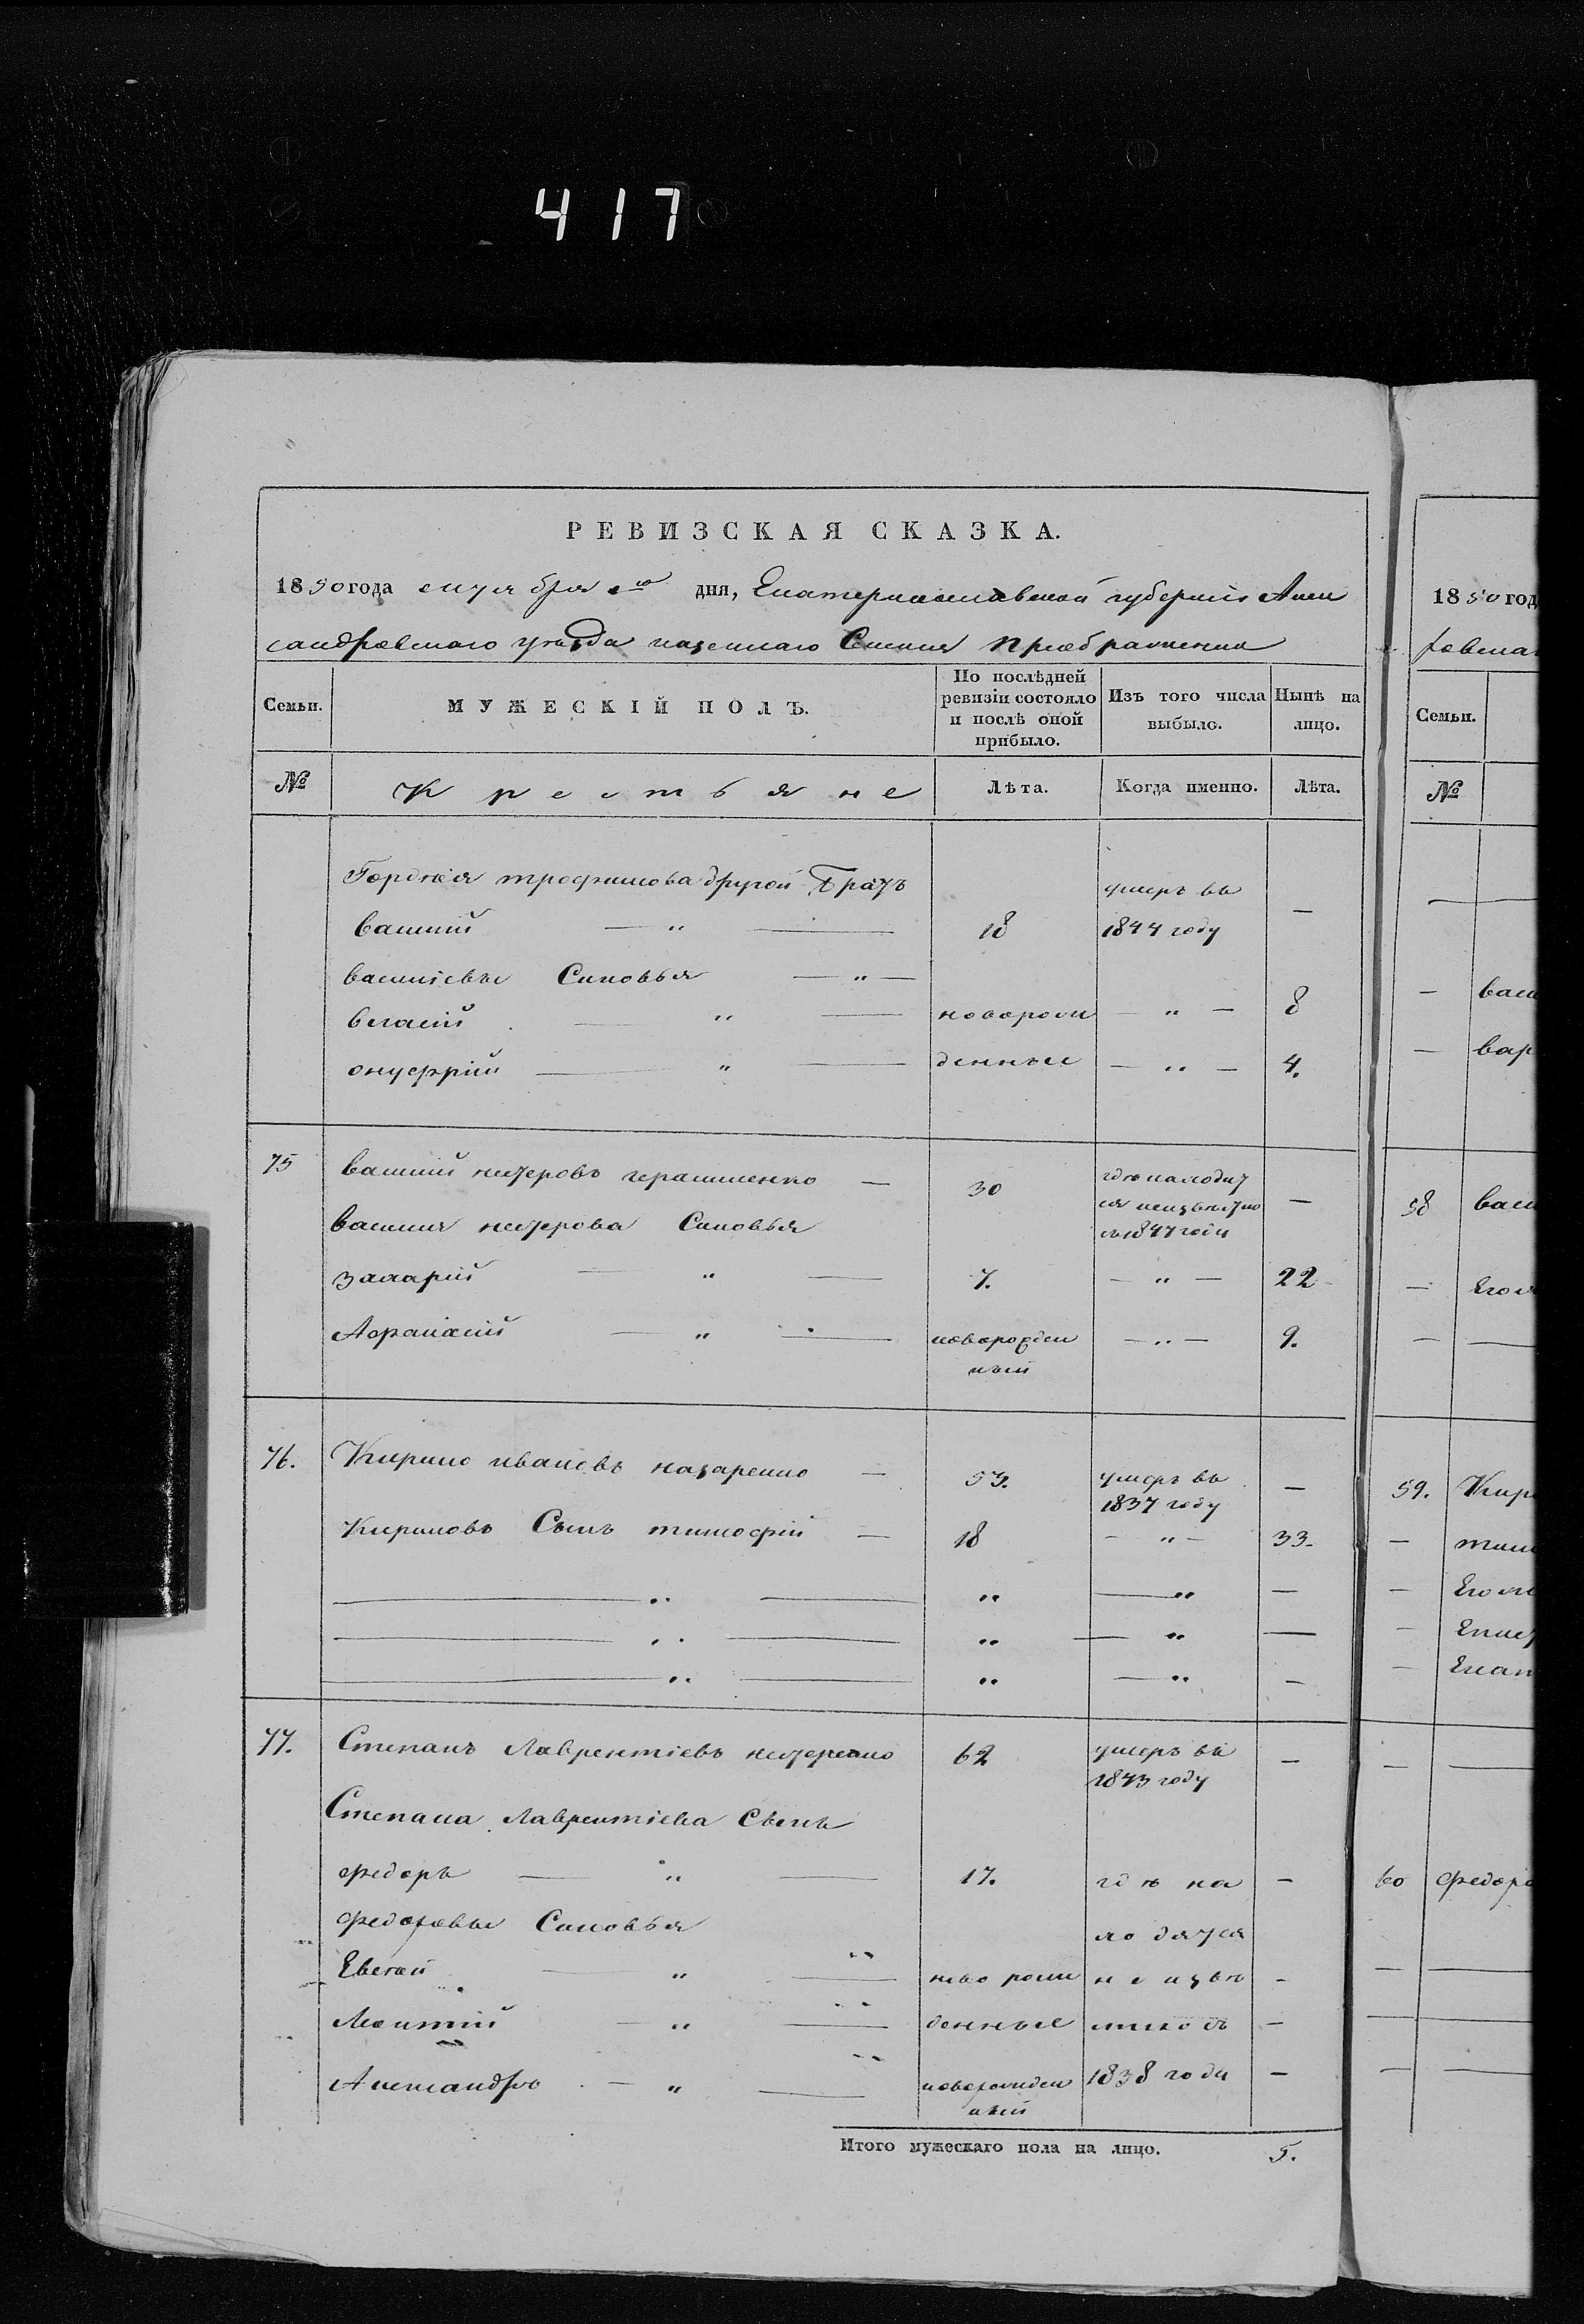 417
РЕВИЗСКАЯ СКАЗКА.
1850 года дня, Екатеринославской губернiи Алек
сандровскаго уѣзда казеннаго Селенiя Преображенки
Семьи.
МУЖЕСКIЙ ПОЛЪ.
По послѣдней ревизiи состояло и послѣ оной прибыло.
Изъ того числа выбыло.
Нынѣ на лицо.
№ Крестьяне Лѣта. Когда именно. Лѣта.
Гордѣя трофимова другой Братъ
василiй — " — 18 умеръ въ 1844 году —
василiевы Сыновья — " —
власiй — " — новорож — " — 8
онуфрiй — " — денные — " — 4.
75 василiй несторовъ герасименко — 30 гдѣ находит ся неизвѣстно съ 1847 года —
василия нестерова Сыновья
захарiй — " — 7. — " — 22
Афанасiй — " — новорожден ный — " — 9.
76. Кирило ивановъ назаренко — 53. умеръ въ 1837 году —
Кириловъ Сынъ тимофiй — 18 — " — 33.
— " — " — " —
— " — " — " —
— " — " — " —
77. Степанъ Лаврентiевъ нестеренко 62 умеръ въ 1843 году —
Степана Лаврентiева Сынъ
федоръ — " — 17. гдѣ на —
федоровы Сыновья ходятся
Евсей — " — ново рож не извѣ -
Леонтiй — " — денные стно съ —
Александръ — " — новорожден ный 1838 года —
Итого мужескаго пола на лицо. 5.
1850 год
ровска
Семьи.
№
—
— васи
— вар
58 васи
— Его ж
—
59. Кири
— тим
— Его же
—
— Екат
—
60 федор
—
—
—